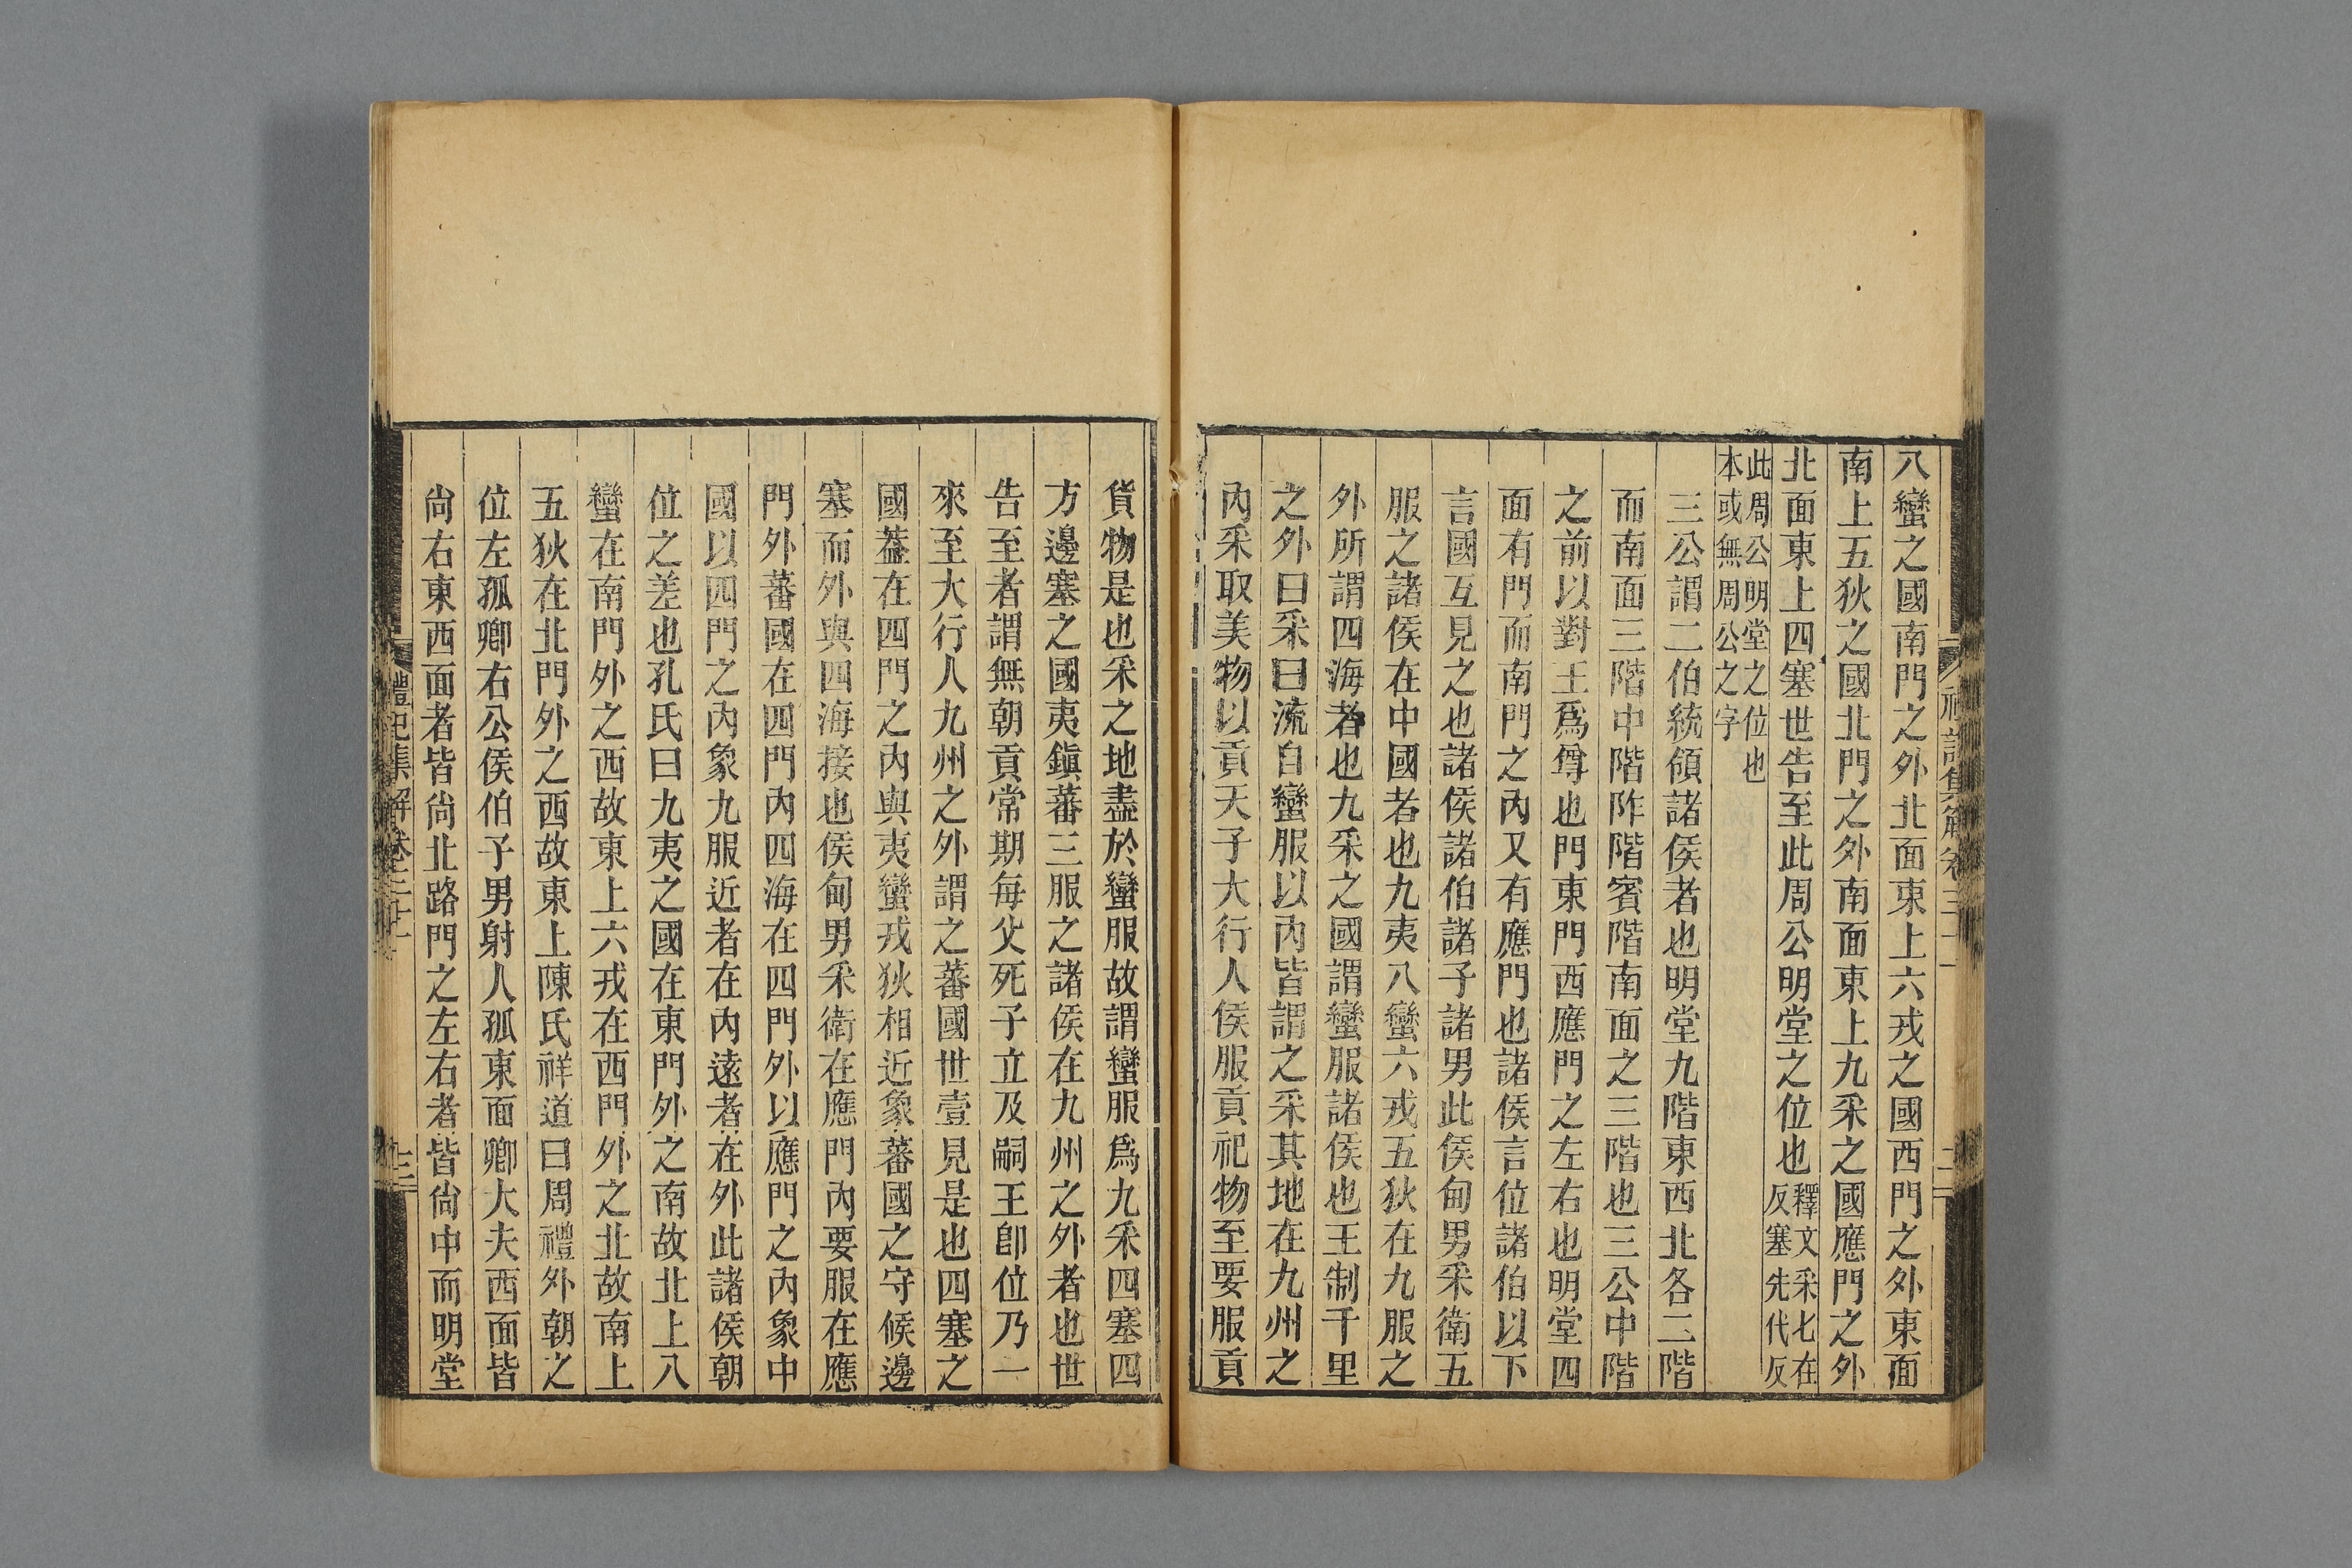 八蠻之國南門之外北面東上六戎之國西門之外東面
南上五狄之國北門之外南面東上九采之國應門之外
北面東上四塞世告至此周公明堂之位也釋文采七在
反塞先代反
此周公明堂之位也
本或無周公之字
三公謂二伯統領諸侯者也明堂九階東西北各二階
而南面三階中階阼階賓階南面之三階也三公中階
之前以對王爲尊也門東門西應門之左右也明堂四
面有門而南門之內又有應門也諸侯言位諸伯以下
言國互見之也諸侯諸伯諸子諸男此侯甸男采衛五
服之諸侯在中國者也九夷八蠻六戎五狄在九服之
外所謂四海者也九采之國謂蠻服諸侯也王制千里
之外曰采曰流自蠻服以內皆謂之采其地在九州之
內采取美物以貢天子大行人侯服貢祀物至要服貢
貨物是也采之地盡於蠻服故謂蠻服爲九采四塞四
方邊塞之國夷鎭蕃三服之諸侯在九州之外者也世
告至者謂無朝貢常期每父死子立及嗣王卽位乃一
來至大行人九州之外謂之蕃國世壹見是也四塞之
國葢在四門之內與夷蠻戎狄相近象蕃國之守候邊
塞而外與四海接也侯甸男采衛在應門內要服在應
門外蕃國在四門內四海在四門外以應門之內象中
國以四門之內象九服近者在內遠者在外此諸侯朝
位之差也孔氏曰九夷之國在東門外之南故北上八
蠻在南門外之西故東上六戎在西門外之北故南上
五狄在北門外之西故東上陳氏祥道曰周禮外朝之
位左孤卿右公侯伯子男射人孤東面卿大夫西面皆
尙右東西面者皆尙北路門之左右者皆尙中而明堂
禮記集解卷三十一